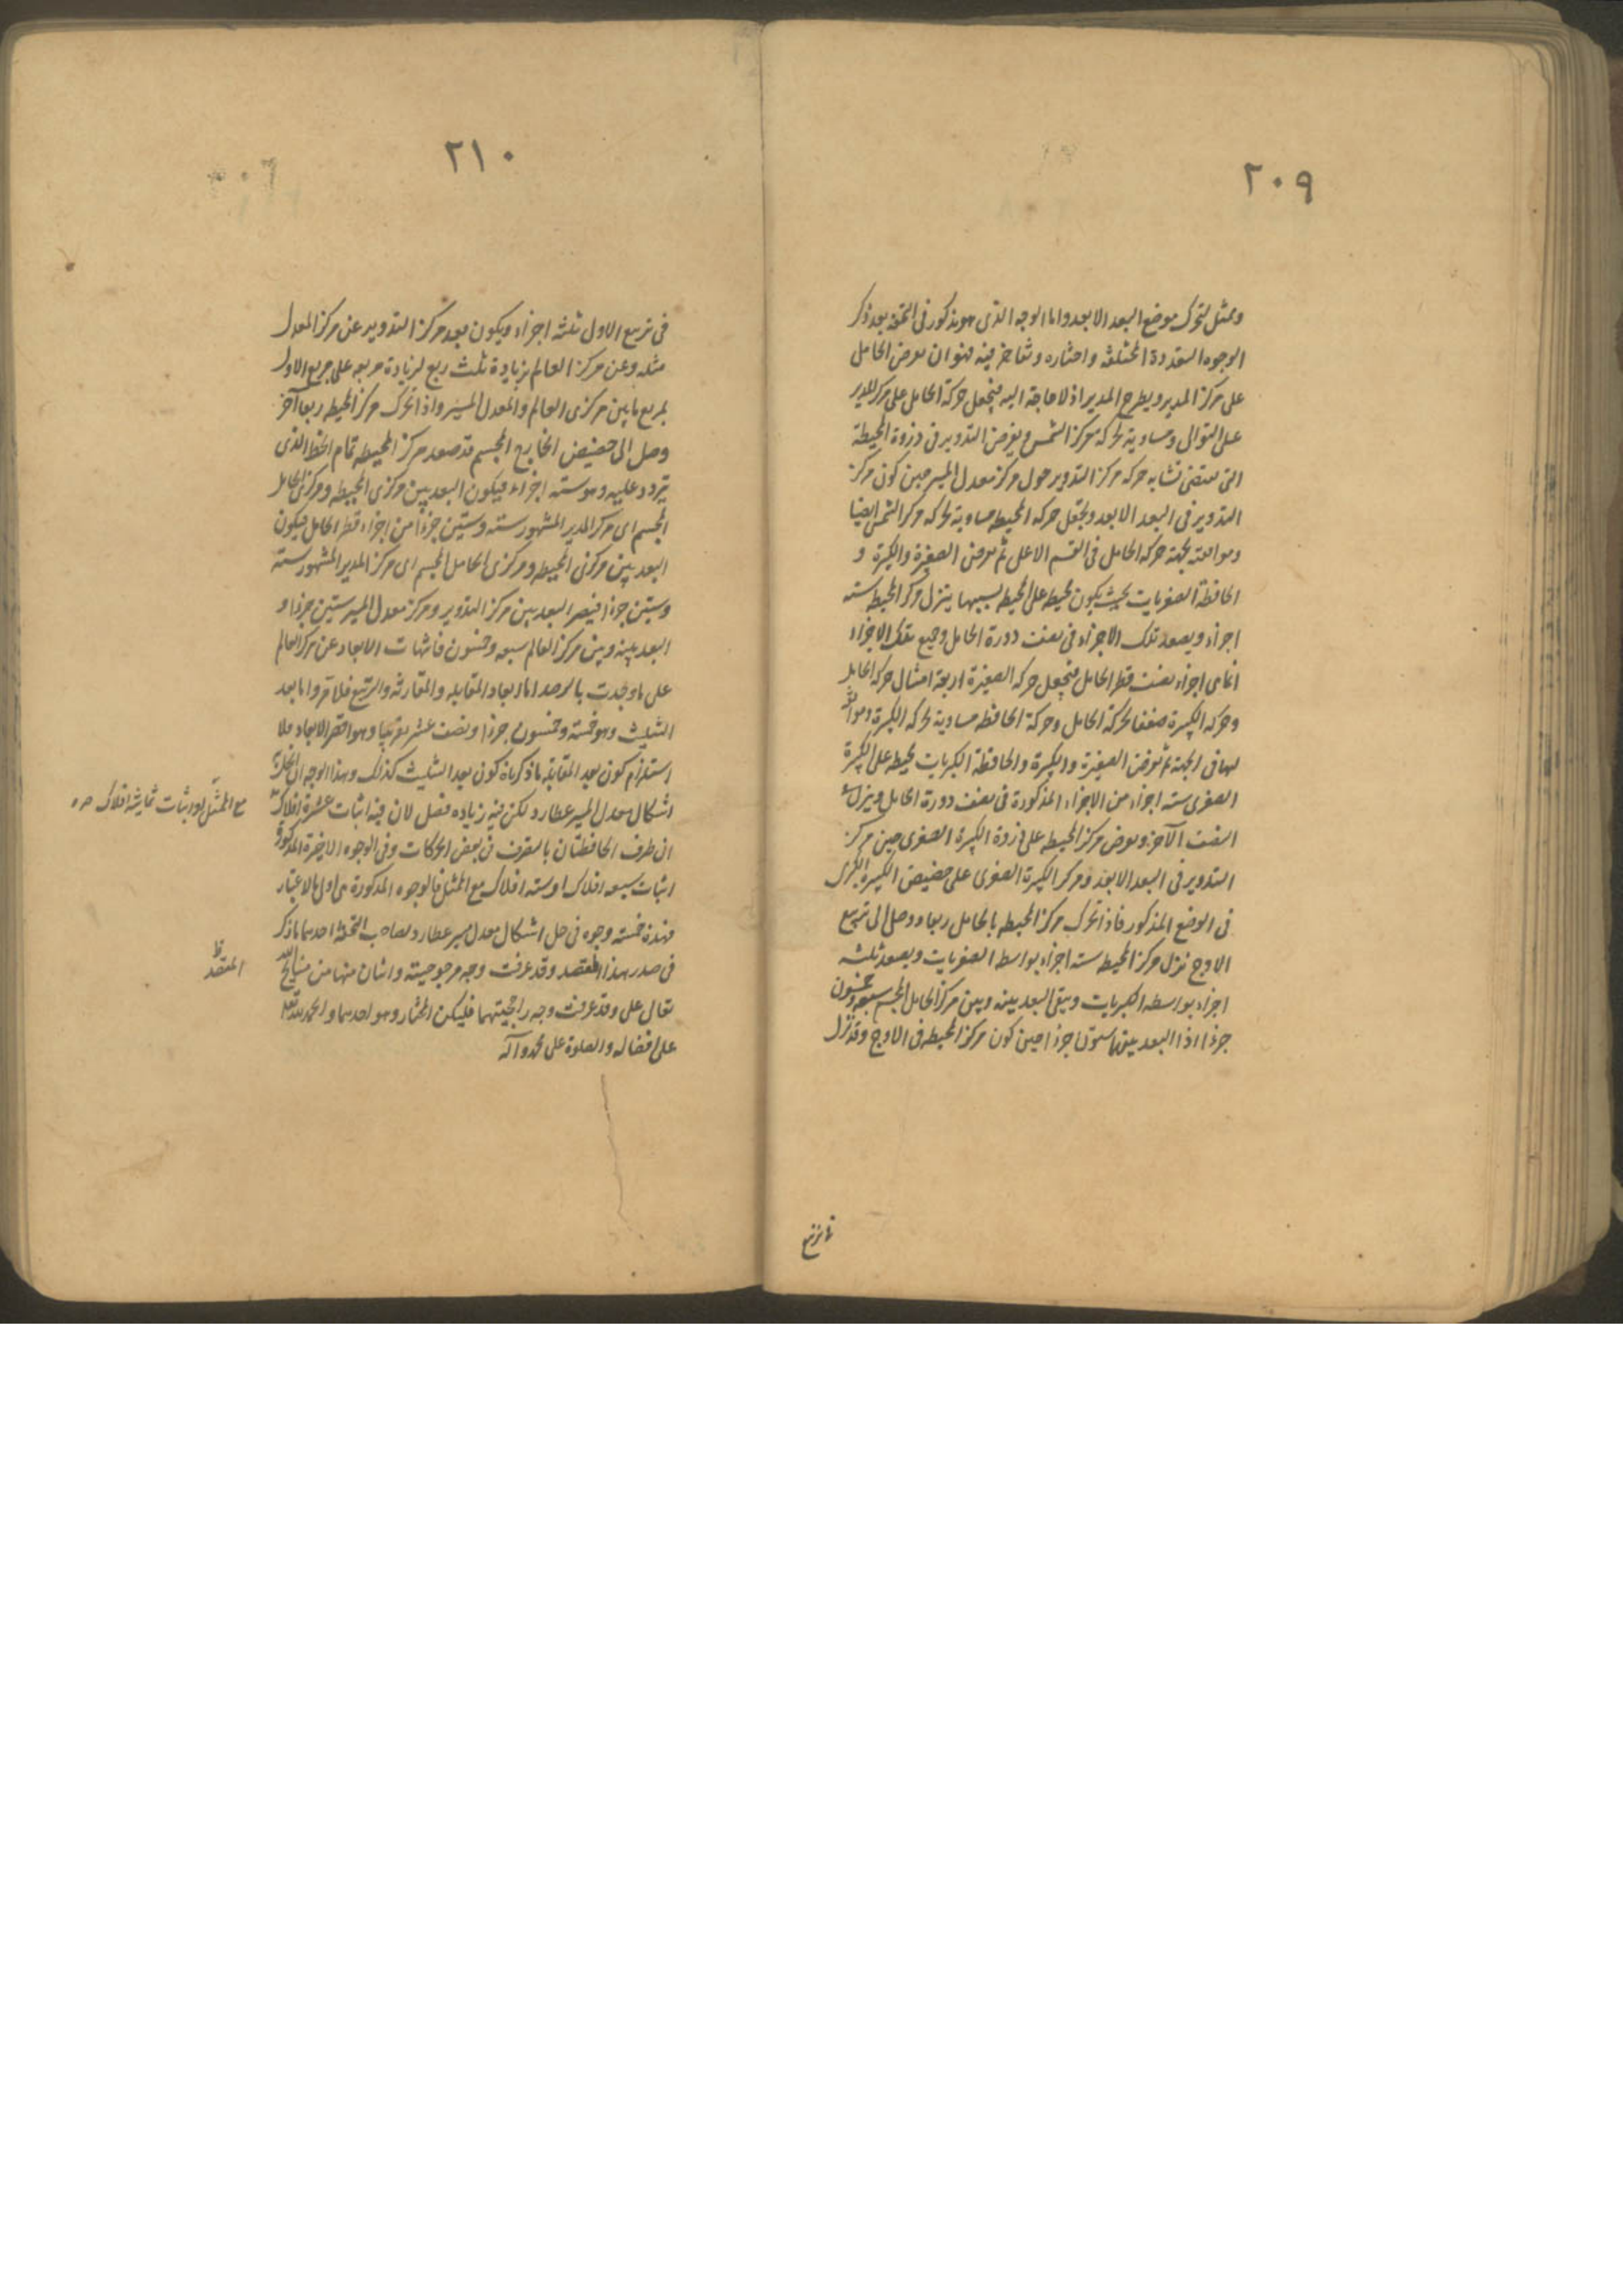 ٢٠٩
وممثل لتحرك موضع البعد الابعد واما الوجه الذى هو مذكور فى التحفة بعد ذكر
الوجوه المتعددة المختلفة واختاره وتفاخر فيه فهو ان نعرض الحامل
على مركز المدير ويطرح المدير اذ لا حاجة اليه فنجعل حركة الحامل على مركز المدير
على التوالى ومساوية لحركة مركز الشمس ويفرض التدوير فى ذروة المحيطة
التى تقتضى تشابه حركة مركز التدوير حول مركز معدل المسير حين كون مركز
التدوير فى البعد الابعد ونجعل حركة المحيطة مساوية لحركة مركز الشمس ايضا
وموافقة لجهة حركة الحامل فى القسم الاعلى ثم نفرض الصغيرة والكبيرة و
الحافظة الصغريات بحيث يكون محيطة على المحيطة بسببها ينزل مركز المحيطة ستة
اجزاء ويصعد تلك الاجزاء فى نصف دورة الحامل وجميع تلك الاجزاء
انما هى اجزاء نصف قطر الحامل فنجعل حركة الصغيرة اربعة امثال حركة الحامل
وحركة الكبيرة ضعفا لحركة الحامل وحركة الحافظة مساوية لحركة الكبيرة وموافقة
لها فى الجهة ثم نفرض الصغيرة والكبيرة والحافظة الكبريات محيطة على الكبيرة
الصغرى ستة اجزاء من الاجزاء المذكورة فى نصف دورة الحامل وينزل فى
النصف الآخر ونعرض مركز المحيطة على ذروة الكبيرة الصغرى حين مركز
التدوير فى البعد الابعد ومركز الكبيرة الصغرى على حضيض الكبيرة الكبرى
فى الوضع المذكور فاذا تحرك مركز المحيطة بالحامل ربعا ووصل الى تربيع
الاوج نزل مركز المحيط ستة اجزاء بواسطة الصغريات ويصعد ثلثة
اجزاء بواسطة الكبريات ويبقى البعد بينه وبين مركز الحامل المجسم سبعة وخمسون
جزءا اذا البعد بينهما ستون جزءا حين كون مركز المحيطة فى الاوج وقد نزل
٢١٠
فى تربيع الاول ثلثة اجزاء ويكون بعد مركز التدوير عن مركز المعدل
مثله وعن مركز العالم بزيادة ثلث ربع لزيادة مربعه على مربع الاول
بمربع ما بين مركزى العالم والمعدل المسير واذا تحرك مركز المحيطة ربعا آخر
وصل الى حضيض الخارج المجسم قد صعد مركز المحيطة تمام الخط الذى
يتردد عليه وهو ستة اجزاء فيكون البعد بين مركزى المحيطة ومركزى الحامل
المجسم اى مركز المدير المشهور ستة وستين جزءا من اجزاء قطر الحامل فيكون
البعد بين مركزى المحيطة ومركزى الحامل المجسم اى مركز المدير المشهور ستة
وستين جزءا فيصير البعد بين مركز التدوير ومركز معدل المسير ستين جزءا و
البعد بينه وبين مركز العالم سبعة وخمسون فانتهات الابعاد عن مركز العالم
على ما وجدت بالرصد اما ابعاد المقابلة والمقارنة والتربيع فلما مر واما بعد
التثليث وهو خمسة وخمسون جزءا ونصف عشر تقريبا وهو اقصر الابعاد فلا
استلزام كون بعد المقابلة ما ذكرناه كون بعد التثليث كذلك وهذا الوجه ان انحل به
اشكال معدل المسير عطارد لكن فيه زيادة فضل لان فيه اثبات عشرة افلاك
ان طرف الحافظتان بالتصرف فى بعض الحركات وفى الوجوه الاخيرة المذكورة
اثبات سبعة افلاك او ستة افلاك مع الممثل فالوجوه المذكورة هى اولى بالاعتبار
فهذه خمسة وجوه فى حل اشكال معدل مسير عطارد لصاحب التحفة احدهما ما ذكر
فى صدر هذا المقصد وقد عرفت وجه مرجوحيته واثنان منها من منايح الله
تعالى على وقد عرفت وجه راجحيتهما فليكن المختار وهو احدهما والحمد لله تعالى
على افضاله والصلوة على محمد وآله
مع الممثل او اثبات ثمانية افلاك صح
المقصد ظ